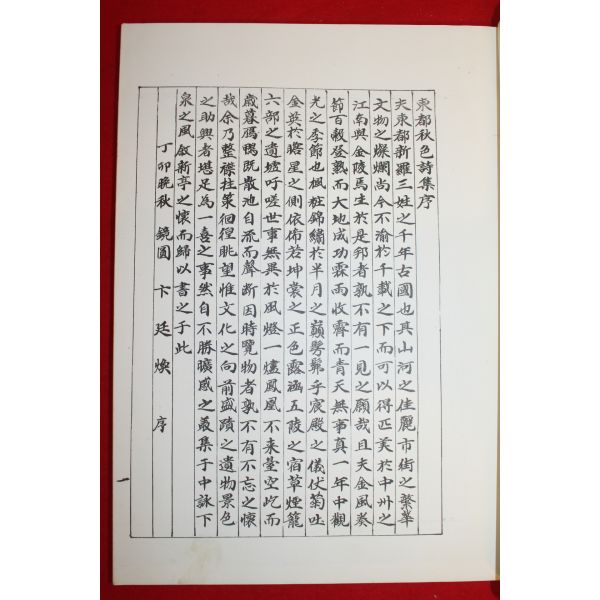 東都秋色詩集序
夫東都新羅三姓之千年古國也其山河之佳麗市街之繁華
文物之燦爛尚今不渝於千載之下而可以得匹美於中州之
江南與金陵焉生於是邦者孰不有一見之願哉且夫金風奏
節百穀登熟而大地成功霖雨收霽而青天無事真一年中觀
光之季節也楓粧錦繡於半月之巔髣髴乎宸殿之儀伏菊吐
金英於瞻星之側依俙若坤裳之正色露涵五陵之宿草煙籠
六部之遺墟吁嗟世事無異於風燈一爐鳳凰不来臺空屹而
歲暮鴈鴨既散池自流而聲断因時覽物者孰不有不忘之懷
哉余乃整襟拄策徊徨眺望惟文化之向前盛蹟之遺物景色
之助興者堪足為一喜之事然自不勝曠感之叢集于中詠下
泉之風敘新亭之懷而歸以書之于此
丁卯晚秋 鏡園 卞廷煥 序
一